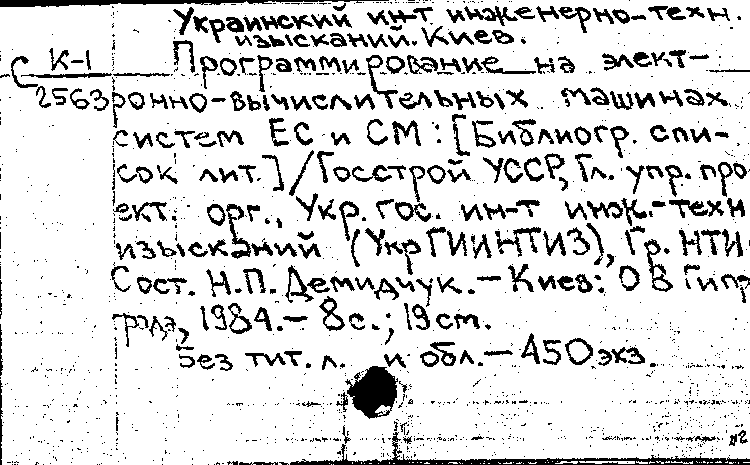 Украинский ин-т инженерно-техн.
изысканий. Киев.
С К-1
2563
Программирование на элект-
ронно-вычислительных машинах
систем ЕС и СМ: [Библиогр. спи-
сок лит.]/Госстрой УССР, Гл. упр. про
ект. орг., Укр. гос. ин-т инж.-техн
изысканий (УкрГИИНТИЗ), Гр. НТИ
Сост. Н.П. Демидчук. - Киев: ОВ Гипр
града, 1984. - 8с.; 19см.
Без тит. л. и обл. - 450 экз.